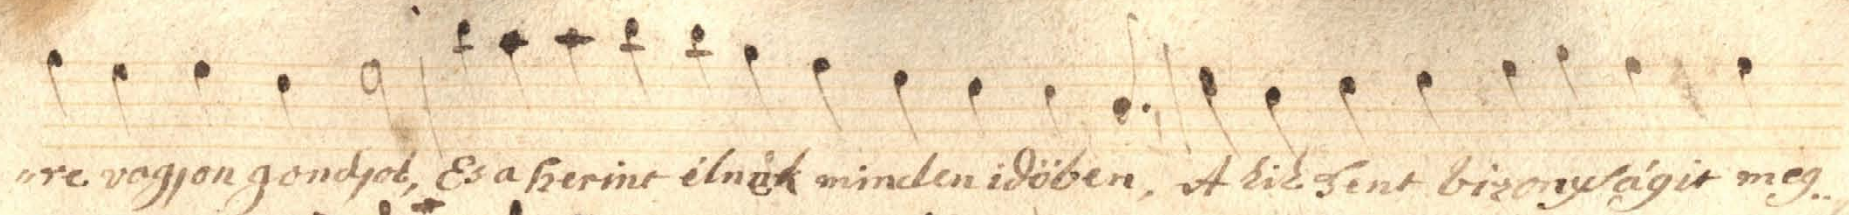 "re vagjon gondjok, Es a szerint élnek minden idöben, A kik szent bizonyságit meg..